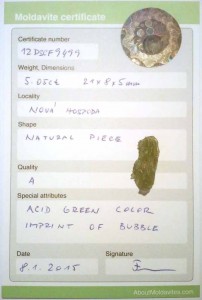 Moldavite certificate
Certificate number
Weight, Dimensions
21x8x5mm
Locality
NOVÁ HOSPODA
Shape
NATURAL PIECE
Quality
A
Special attributes
ACID GREEN COLOR
IMPRINT OF BUBBLE
Date
Signature
8.1.2015
AboutMoldavites.com